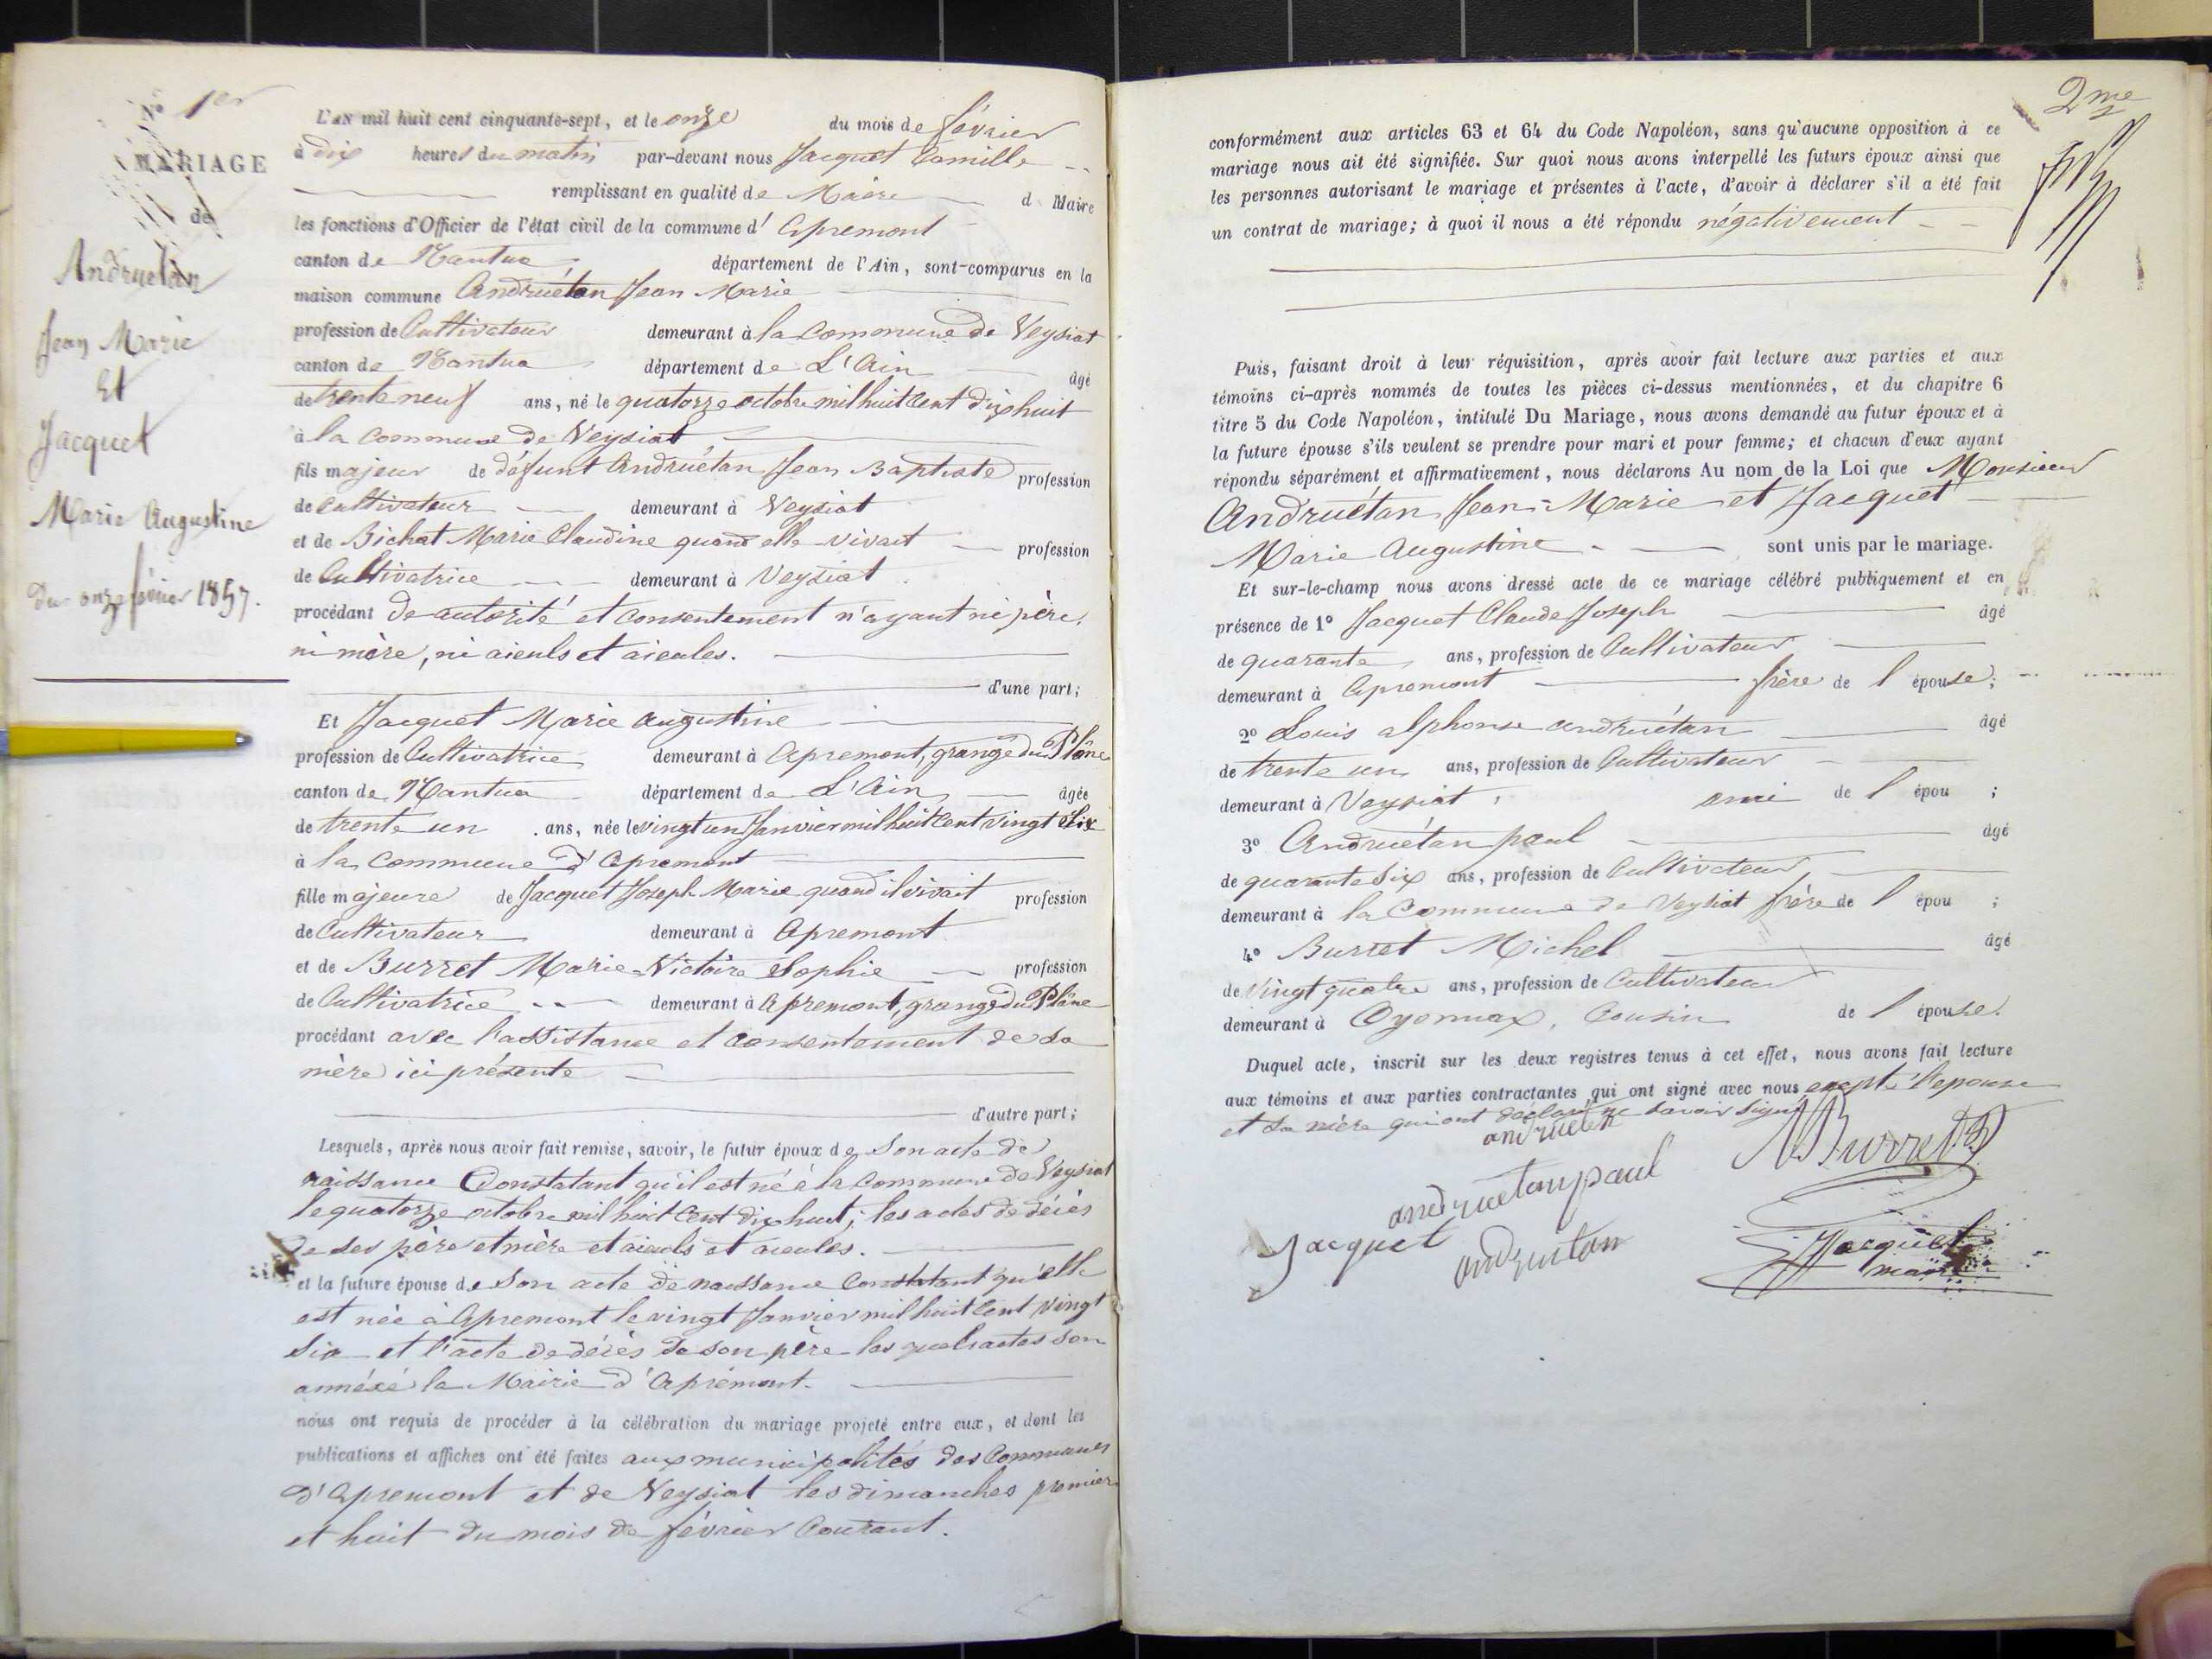 N° 1er
MARIAGE
de
Andruétan
Jean Marie
Et
Jacquet
Marie Augustine
du onze février 1857.
L'AN mil huit cent cinquante-sept, et le onze du mois de février
à dix heures du matin par-devant nous Jacquet Camille
remplissant en qualité de Maire d Maire
les fonctions d'Officier de l'état civil de la commune d' Apremont
canton de Nantua département de l'Ain, sont comparus en la
maison commune Andruétan Jean Marie
profession de Cultivateur demeurant à la Commune de Veysiat
canton de Nantua département de L'Ain âgé
de trente neuf ans, né le quatorze octobre mil huit cent dix huit
à la Commune de Veysiat
fils majeur de défunt Andruétan Jean Baptiste profession
de Cultivateur demeurant à Veysiat
et de Bichat Marie Claudine quand elle vivait profession
de Cultivatrice demeurant à Veysiat
procédant de autorité et consentement n'ayant ni père,
ni mère, ni aieuls et aieules.
d'une part;
Et Jacquet Marie augustine
profession de Cultivatrice demeurant à Apremont, grange du Plâne
canton de Nantua département de L'Ain âgée
de trente un ans, née le vingt un Janvier mil huit cent vingt Six
à la Commune d'Apremont
fille majeure de Jacquet Joseph Marie quand il vivait profession
de Cultivateur demeurant à Apremont
et de Burret Marie-Victoire Sophie profession
de Cultivatrice demeurant à Apremont, grange du Plâne
procédant avec l'assistance et consentement de sa
mère ici présente
d'autre part;
Lesquels, après nous avoir fait remise, savoir, le futur époux de Son acte de
naissance Constatant qu'il est né à la Commune de Veysiat
le quatorze octobre mil huit cent dix huit; les actes de décès
de ses père et mère et aieuls et aieules.
et la future épouse de Son acte de naissance Constatant qu'elle
est née à Apremont le vingt Janvier mil huit cent vingt
Six et l'acte de décès de son père les quels actes son
annéxé la Mairie d'Apremont.
nous ont requis de procéder à la célébration du mariage projeté entre eux, et dont les
publications et affiches ont été faites aux municipalités des Communes
d'Apremont et de Veysiat les dimanches premier
et huit du mois de février Courant.
2me
conformément aux articles 63 et 64 du Code Napoléon, sans qu'aucune opposition à ce
mariage nous ait été signifiée. Sur quoi nous avons interpellé les futurs époux ainsi que
les personnes autorisant le mariage et présentes à l'acte, d'avoir à déclarer s'il a été fait
un contrat de mariage; à quoi il nous a été répondu négativement
Puis, faisant droit à leur réquisition, après avoir fait lecture aux parties et aux
témoins ci-après nommés de toutes les pièces ci-dessus mentionnées, et du chapitre 6
titre 5 du Code Napoléon, intitulé Du Mariage, nous avons demandé au futur époux et à
la future épouse s'ils veulent se prendre pour mari et pour femme; et chacun d'eux ayant
répondu séparément et affirmativement, nous déclarons Au nom de la Loi que Monsieur
Andruétan Jean-Marie et Jacquet
Marie Augustine sont unis par le mariage.
Et sur-le-champ nous avons dressé acte de ce mariage célébré publiquement et en
présence de 1° Jacquet Claude Joseph âgé
de quarante ans, profession de Cultivateur
demeurant à Apremont frère de l épouse;
2° Louis alphonse andruétan âgé
de trente un ans, profession de Cultivateur
demeurant à Veysiat, ami de l épou ;
3° Andruétan paul âgé
de quarante six ans, profession de Cultivateur
demeurant à la Commune de Veysiat frère de l épou ;
4° Burret Michel âgé
de vingt quatre ans, profession de Cultivateur
demeurant à Oyonnax, Cousin de l épouse.
Duquel acte, inscrit sur les deux registres tenus à cet effet, nous avons fait lecture
aux témoins et aux parties contractantes qui ont signé avec nous excepté l'épouse
et sa mère qui ont déclaré ne savoir signé
andruétan
MBurret
andruetan paul
Jacquet
andruetan
Jacquet
maire